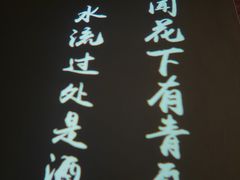 闻花下有青
水流过处是酒